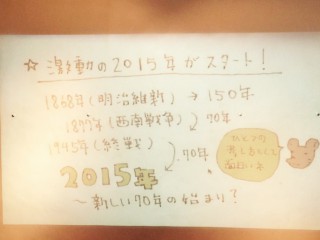 ☆ 激動の2015年がスタート!
1868年(明治維新) → 150年
1877年(西南戦争)
70年
1945年(終戦)
70年
2015年
〜新しい70年の始まり?
ひとつの